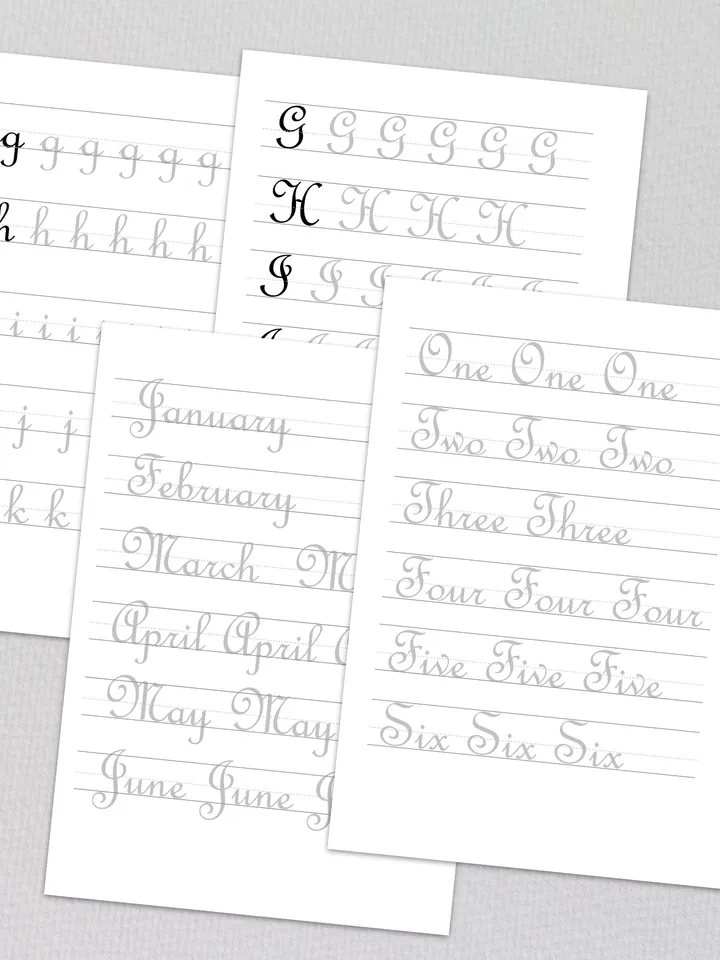 g g g g g g
h h h h h h
i i i
j j
k k
G G G G G G
H H H H
I I I
January
February
March M
April April
May May
June June
One One One
Two Two Two
Three Three
Four Four Four
Five Five Five
Six Six Six